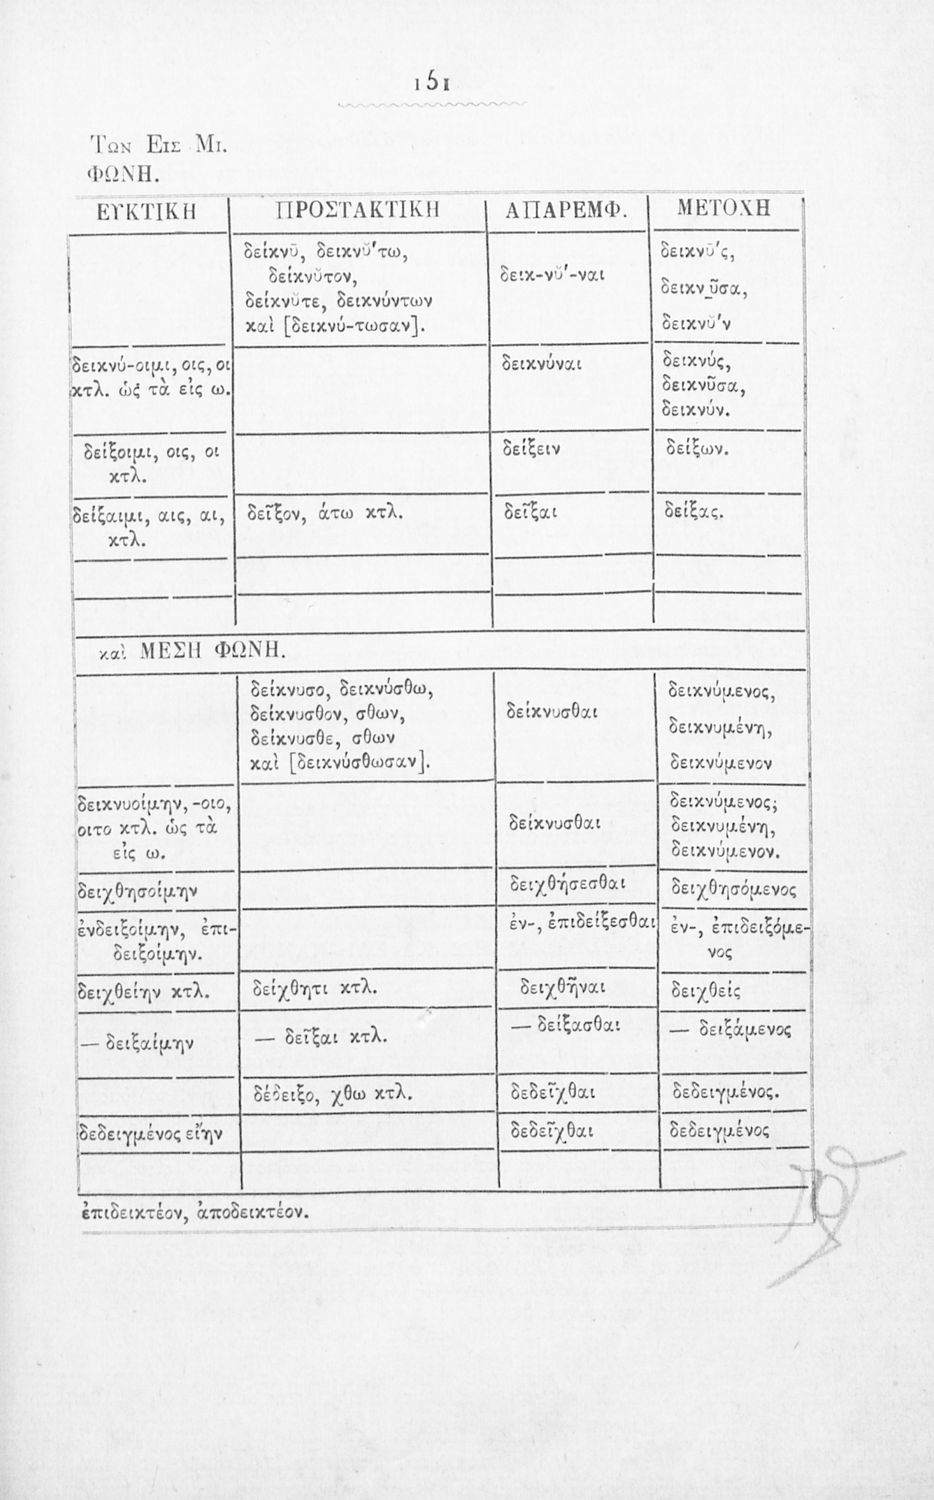 151
Των Εις Μι.
ΦΩΝΗ.
ΕΥΚΤΙΚΗ ΠΡΟΣΤΑΚΤΙΚΗ ΑΠΑΡΕΜΦ. ΜΕΤΟΧΗ
δείκνῡ, δεικνῠ'τω,
δείκνῠτον,
δείκνῠτε, δεικνύντων
καὶ [δεικνύ-τωσαν].
δεικ-νῠ'-ναι
δεικνῡ'ς,
δεικνῦσα,
δεικνῠ'ν
δεικνύ-οιμι, οις, οι
κτλ. ὡς τὰ εἰς ω.
δεικνύναι
δεικνύς,
δεικνῦσα,
δεικνύν.
δείξοιμι, οις, οι
κτλ.
δείξειν
δείξων.
δείξαιμι, αις, αι,
κτλ.
δεῖξον, άτω κτλ.
δεῖξαι
δείξας.
καὶ ΜΕΣΗ ΦΩΝΗ.
δείκνυσο, δεικνύσθω,
δείκνυσθον, σθων,
δείκνυσθε, σθων
καὶ [δεικνύσθωσαν].
δείκνυσθαι
δεικνύμενος,
δεικνυμένη,
δεικνύμενον
δεικνυοίμην, -οιο,
οιτο κτλ. ὡς τὰ
εἰς ω.
δείκνυσθαι
δεικνύμενος;
δεικνυμένη,
δεικνύμενον.
δειχθησοίμην
δειχθήσεσθαι
δειχθησόμενος
ἐνδειξοίμην, ἐπι-
δειξοίμην.
ἐν-, ἐπιδείξεσθαι
ἐν-, ἐπιδειξόμε-
νος
δειχθείην κτλ.
δείχθητι κτλ.
δειχθῆναι
δειχθείς
— δειξαίμην
— δεῖξαι κτλ.
— δείξασθαι
— δειξάμενος
δέδειξο, χθω κτλ.
δεδεῖχθαι
δεδειγμένος.
δεδειγμένος εἴην
δεδεῖχθαι
δεδειγμένος
ἐπιδεικτέον, ἀποδεικτέον.